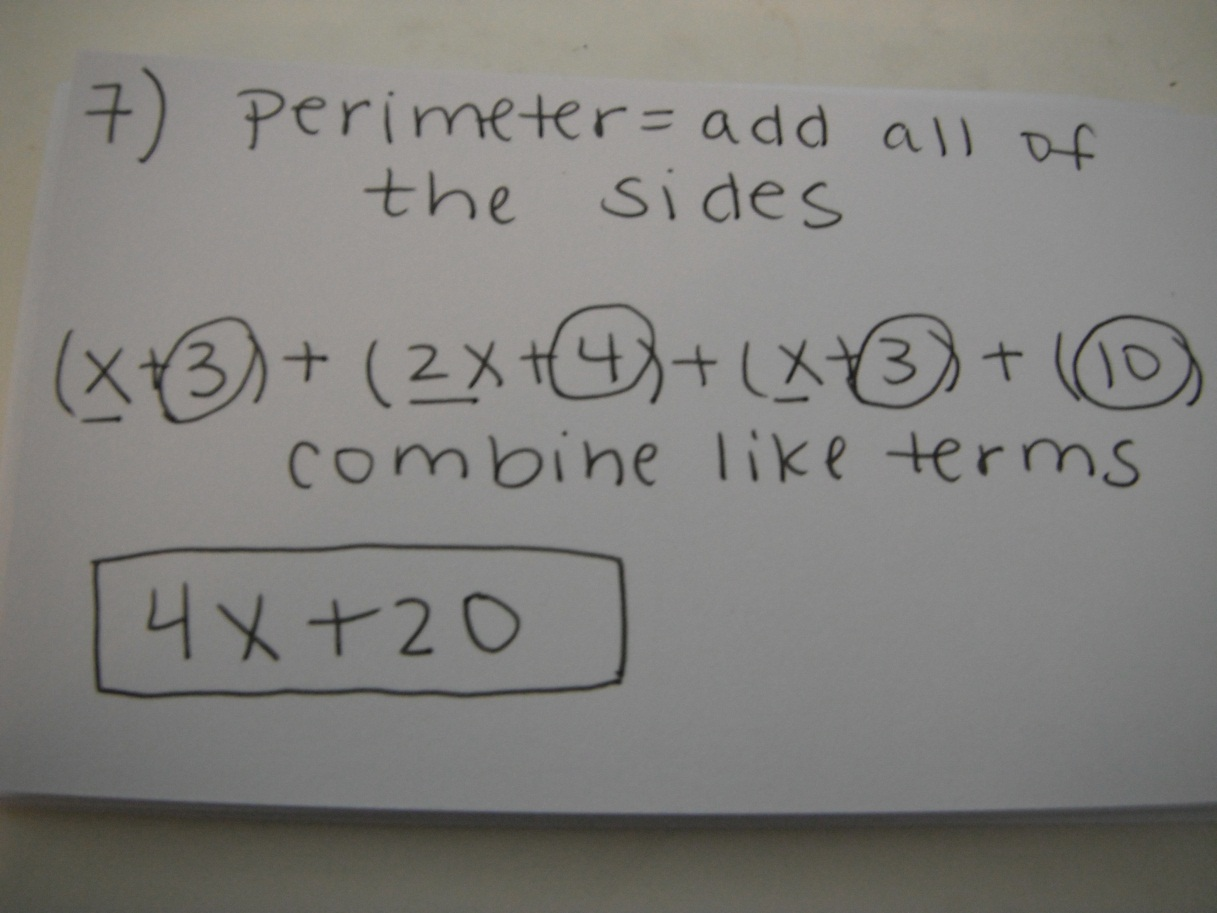 7) Perimeter = add all of
the sides
(x+3) + (2x+4) + (x+3) + (10)
combine like terms
4x+20